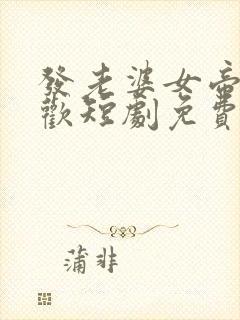 發老婆女帝
歡短劇免費
蒲非